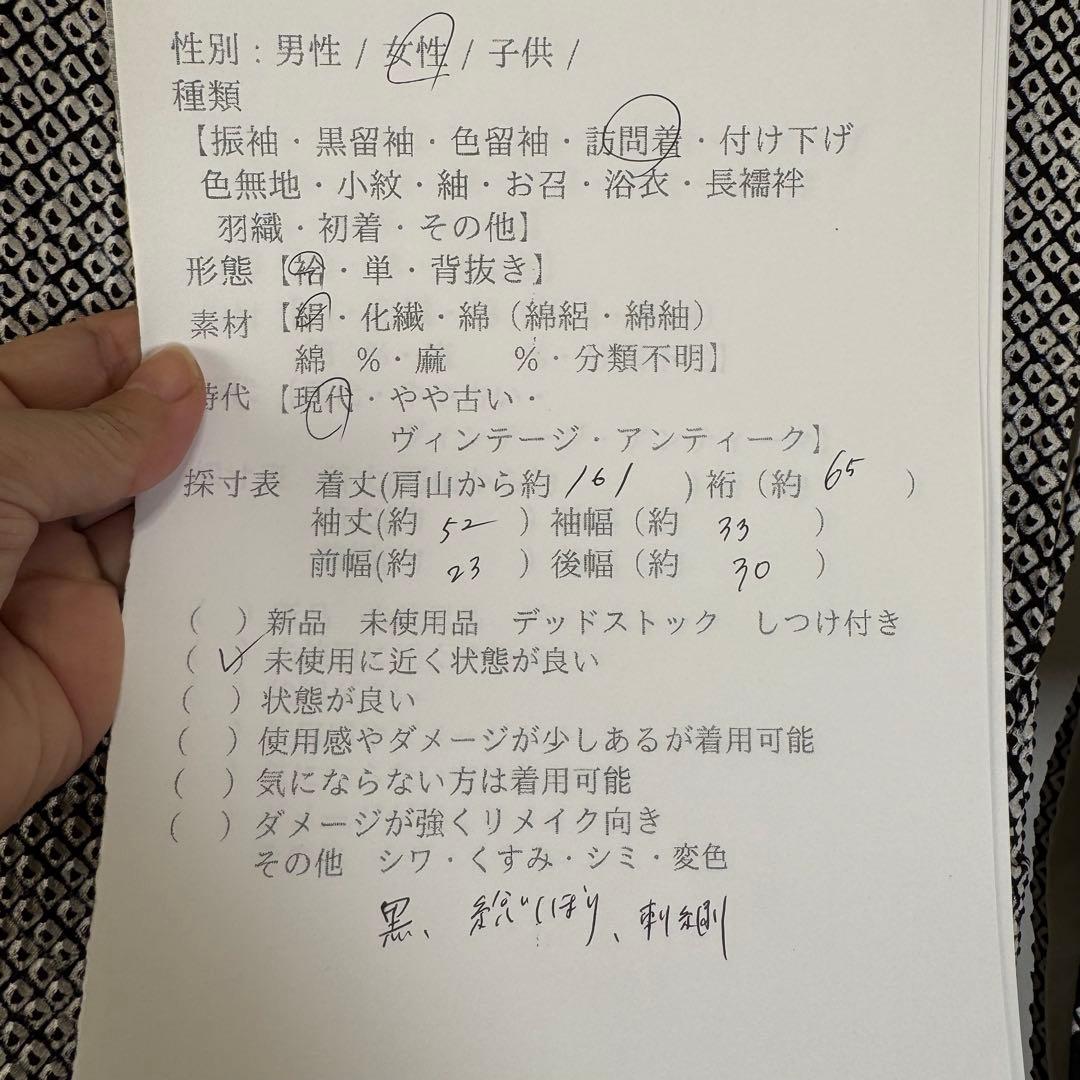 性別：男性 / 女性 / 子供 /
種類
【振袖・黒留袖・色留袖・訪問着・付け下げ
色無地・小紋・紬・お召・浴衣・長襦袢
羽織・初着・その他】
形態【袷・単・背抜き】
素材【絹・化繊・綿（綿絽・綿紬）
綿 %・麻 %・分類不明】
時代【現代・やや古い・
ヴィンテージ・アンティーク】
採寸表 着丈(肩山から約 161 ) 裄（約 65 ）
袖丈(約 52 ）袖幅（約 33 ）
前幅(約 23 ）後幅（約 30 ）
（ ）新品 未使用品 デッドストック しつけ付き
（✓）未使用に近く状態が良い
（ ）状態が良い
（ ）使用感やダメージが少しあるが着用可能
（ ）気にならない方は着用可能
（ ）ダメージが強くリメイク向き
その他 シワ・くすみ・シミ・変色
黒、総しぼり、刺繍